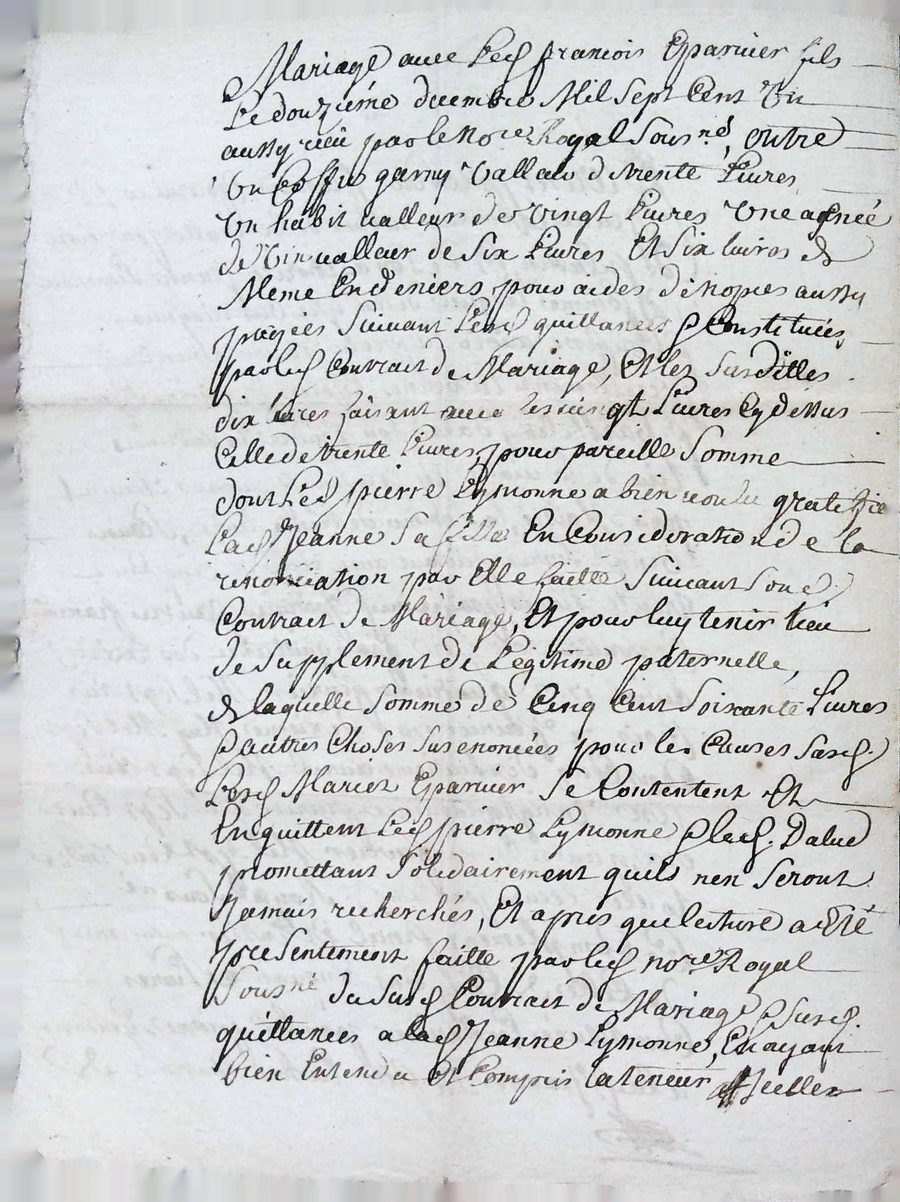 Mariage avec Led françois Eparvier fils
Le douziéme decembre Mil Sept Cent Un
aussy reçu par le Nore Royal Sousné, outre
Un Coffre garny Vallant de trente Livres
Un habit valleur de Vingt Livres Une asnée
de Vin valleur de Six Livres Et Six livres de
Meme En deniers pour aides de nopces aussy
payées Suivant Lesd quittances & Constituées
par led Contrait de Mariage, Et les Susdittes
dix livres faisant avec les vingt Livres Cy dessus
Celle de trente Livres, pour pareille Somme
dont Led pierre Lymonne a bien voulu gratiffie
Lad Jeanne Sa fille En Consideration de la
renonciation par Elle faitte Suivant Son d
Contrait de Mariage, Et pour luy tenir lieu
de Supplement de Légitime paternelle,
de laquelle Somme de Cinq Cent Soixante Livres
& autres Choses Sus enoncées pour les Causes Susd.
Lesd Mariez Eparvier Se Contentent Et
En quittent Led pierre Lymonne & led. Dalud
promettant Solidairement quils nen Seront
Jamais recherchés, Et apres que lecture a Eté
presentement faitte par led nore Royal
Sousné du Susd Contrait de Mariage & Susd.
quittances a lad Jeanne Lymonne, En ayant
bien Entendu Et Compris la teneur, Icelle